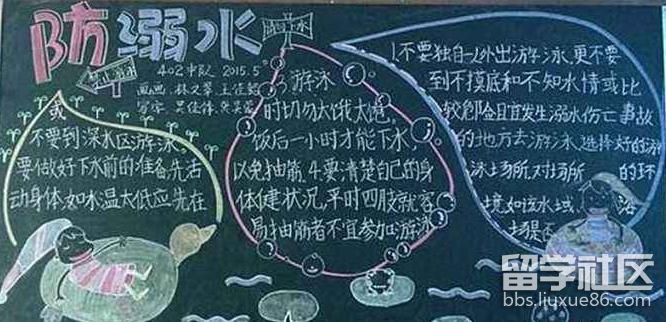 防溺水
402中队 2015.5
禁止游泳
画画
写字
或
不要到深水区游泳,
要做好下水前的准备先活
动身体,如水温太低应先在
游泳
时切勿太饿太饱
饭后一小时才能下水,
以免抽筋.4.要清楚自己的身
体健状况,平时四肢就容
易抽筋者不宜参加游泳
1.不要独自一人外出游泳,更不要
到不摸底和不知水情或比
较危险且宜发生溺水伤亡事故
的地方去游泳,选择好的游
泳场所,对场所的环
境如该水域浴
场是否
留学社区
bbs.liuxue86.com